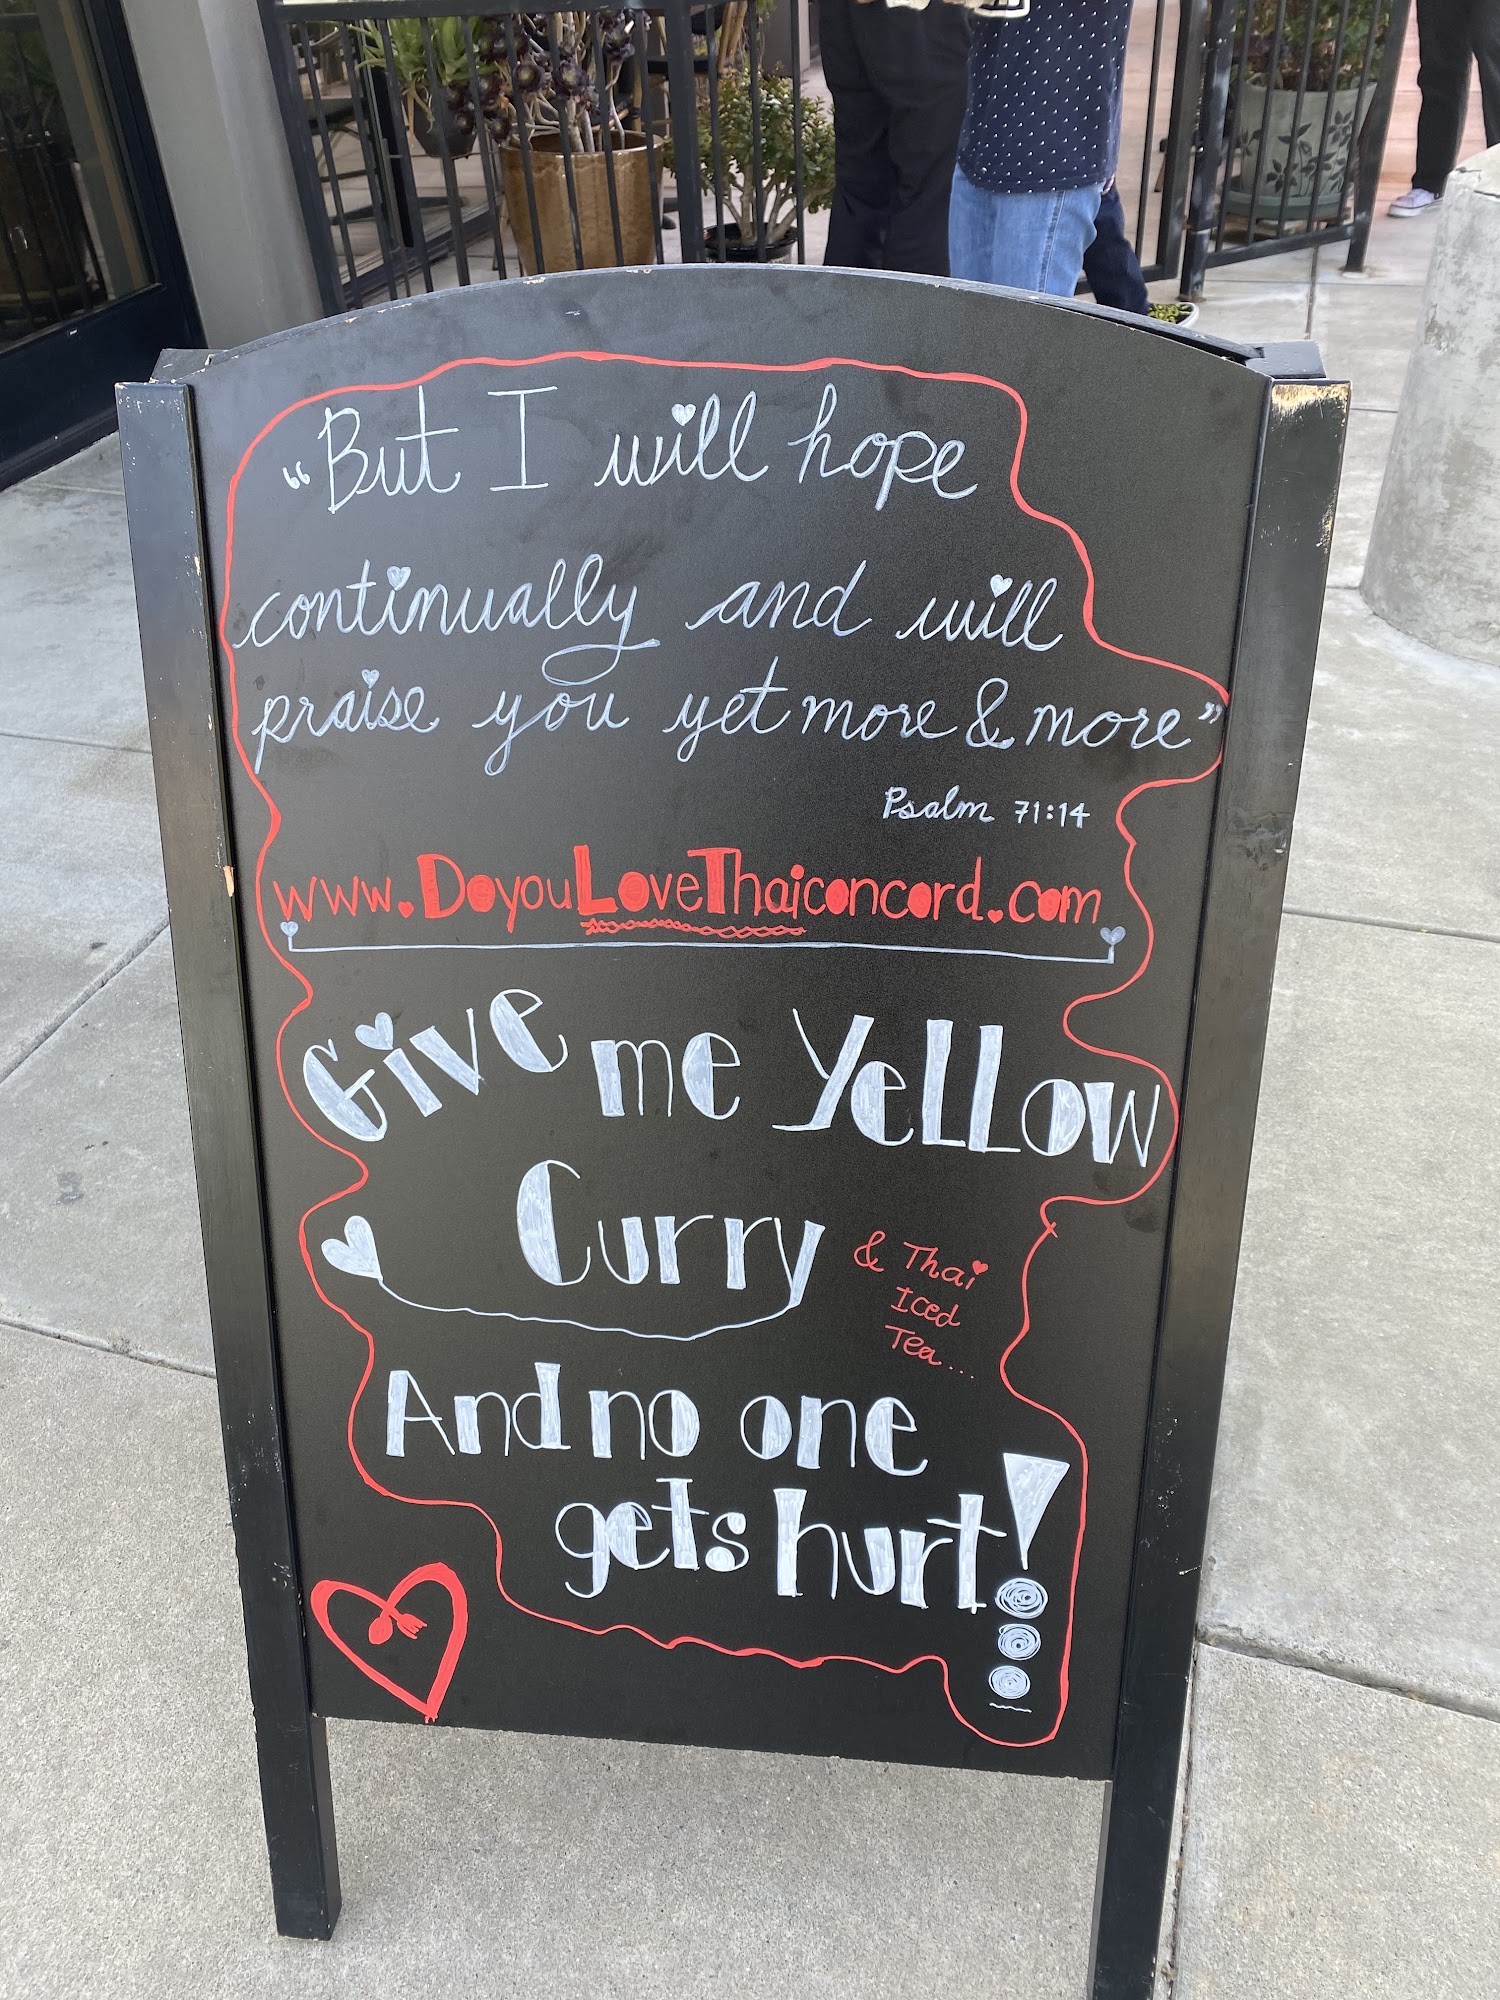 “But I will hope
continually and will
praise you yet more & more”
Psalm 71:14
www.DoyouLoveThaiconcord.com
Give me Yellow
Curry
& Thai
Iced
Tea....
And no one
gets hurt!